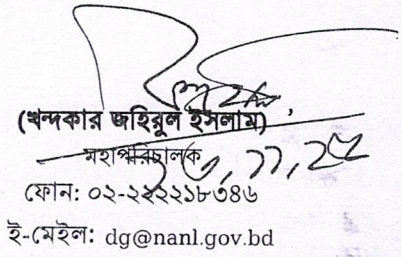 (খন্দকার জহিরুল ইসলাম)
মহাপরিচালক
ফোন: ০২-২২২২১৮৩৪৬
ই-মেইল: dg@nanl.gov.bd